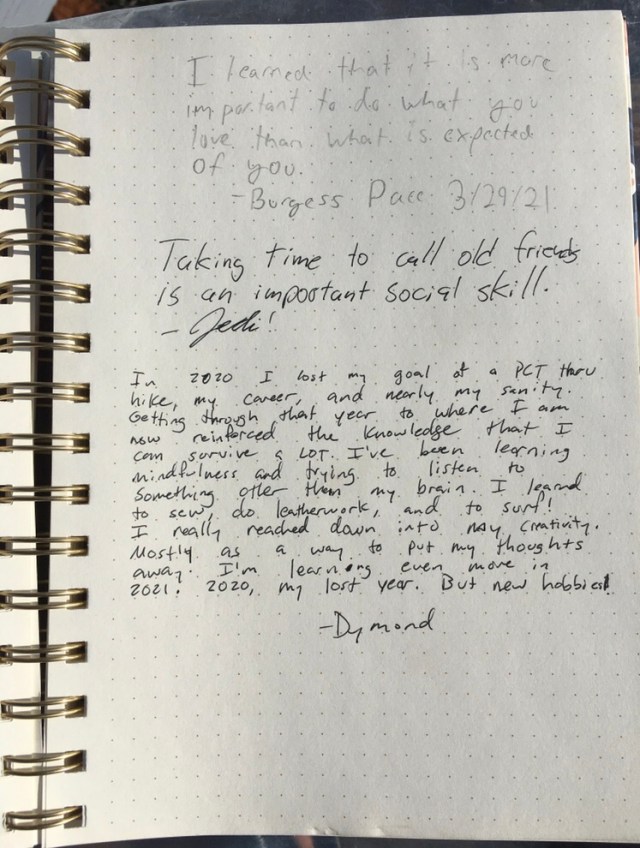 I learned that it is more
important to do what you
love than what is expected
of you.
- Burgess Pace 3/29/21
Taking time to call old friends
is an important social skill.
- Jedi!
In 2020 I lost my goal of a PCT thru
hike, my career, and nearly my sanity.
Getting through that year to where I am
now reinforced the knowledge that I
can survive a LOT. I've been learning
mindfulness and trying to listen to
something other than my brain. I learnd
to sew, do leatherwork, and to surf!
I really reached down into my creativity.
Mostly as a way to put my thoughts
away. I'm learning even more in
2021. 2020, my lost year. But new hobbies!
- Dymond